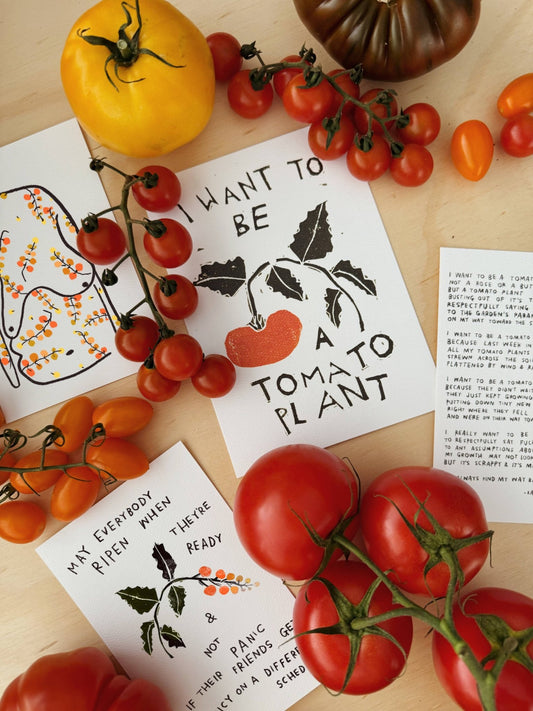 I WANT TO
BE
A
TOMATO
PLANT
I WANT TO BE A TOMA
NOT A ROSE OR A BUT
BUT A TOMATO PLANT
BUSTING OUT OF IT'S T
RESPECTFULLY SAYING
TO THE GARDEN'S PARA
ON MY WAY TOWARD THE S
I WANT TO BE A TOMATO
BECAUSE LAST WEEK IN
ALL MY TOMATO PLANTS
STREWN ACROSS THE SOI
FLATTENED BY WIND & RA
I WANT TO BE A TOMATO
BECAUSE THEY DIDN'T WAIT
THEY JUST KEPT GROWING
PUTTING DOWN TINY NEW
RIGHT WHERE THEY FELL
AND WERE ON THEIR WAY TO
I REALLY WANT TO BE
TO RESPECTFULLY SAY FUC
TO ANY ASSUMPTIONS ABOU
MY GROWTH MAY NOT LOO
BUT IT'S SCRAPPY & IT'S M
ALWAYS FIND MY WAY B
MAY EVERYBODY
RIPEN WHEN
THEY'RE
READY
&
NOT PANIC
IF THEIR FRIENDS GE
ICY ON A DIFFEREN
SCHED